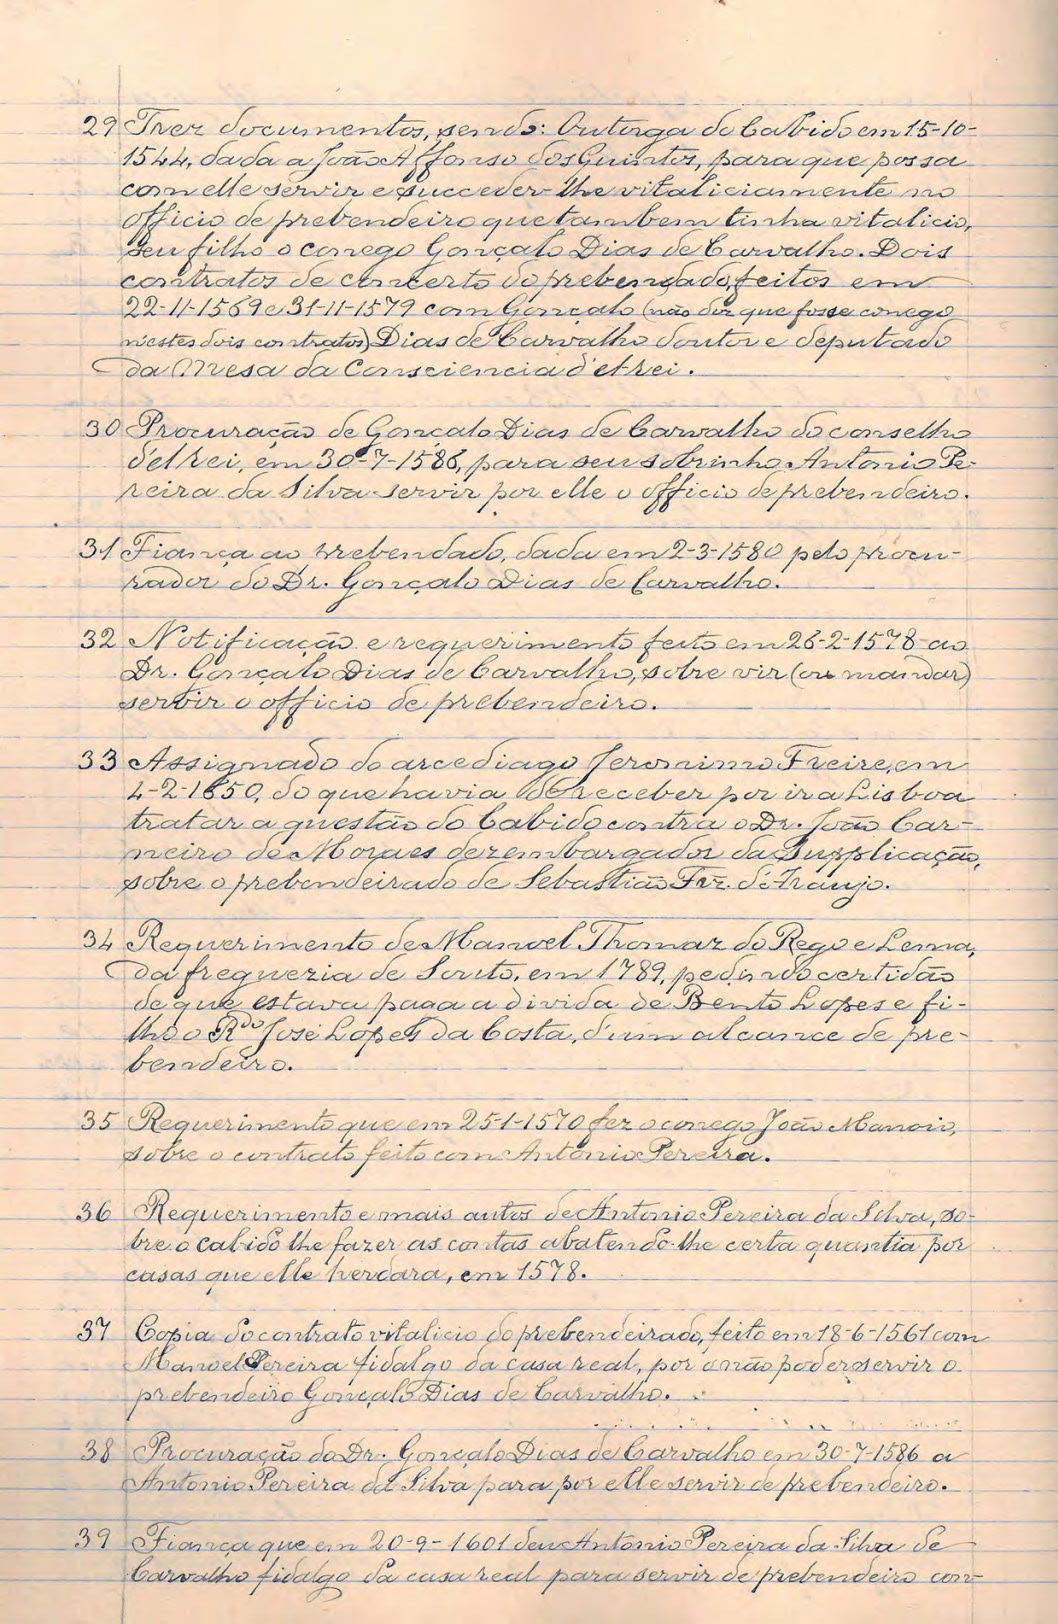 29 Trez documentos, sendo: Outorga do Cabido em 15-10-
1544, dada a João Affonso dos Quintos, para que possa
com elle servir e succeder-lhe vitaliciamente no
officio de prebendeiro que tambem tinha vitalicio,
seu filho o conego Gonçalo Dias de Carvalho. Dois
contratos de concerto do prebendado, feitos em
22-11-1569 e 31-11-1579 com Gonçalo (não diz que fosse conego
n'estes dois contratos) Dias de Carvalho doutor e deputado
da Mesa da Consciencia d'el-rei.
30 Procuração de Gonçalo Dias de Carvalho do conselho
d'el rei, em 30-7-1586, para seu sobrinho Antonio Pe-
reira da Silva servir por elle o officio de prebendeiro.
31 Fiança ao prebendado, dada em 2-3-1580 pelo procu-
rador do Dr. Gonçalo Dias de Carvalho.
32 Notificação e requerimento feito em 26-2-1578 ao
Dr. Gonçalo Dias de Carvalho, sobre vir (ou mandar)
servir o officio de prebendeiro.
33 Assignado do arcediago Jeronimo Freire, em
4-2-1650, do que havia de receber por ir a Lisboa
tratar a questão do Cabido contra o Dr. João Car-
neiro de Moraes dezembargador da Supplicação,
sobre o prebendeirado de Sebastião Frz. d'Araujo.
34 Requerimento de Manoel Thomaz do Rego e Lema,
da freguezia de Souto, em 1789, pedindo certidão
de que estava paga a divida de Bento Lopes e fi-
lho o Rdo José Lopes da Costa, d'um alcance de pre-
bendeiro.
35 Requerimento que em 25-1-1570 fez o conego João Manoio,
sobre o contrato feito com Antonio Pereira.
36 Requerimento e mais autos de Antonio Pereira da Silva, so-
bre o Cabido lhe fazer as contas abatendo-lhe certa quantia por
casas que elle herdara, em 1578.
37 Copia do contrato vitalicio do prebendeirado, feito em 18-6-1561 com
Manoel Pereira fidalgo da casa real, por a não poder servir o
prebendeiro Gonçalo Dias de Carvalho.
38 Procuração do Dr. Gonçalo Dias de Carvalho em 30-7-1586 a
Antonio Pereira da Silva para por elle servir de prebendeiro.
39 Fiança que em 20-9-1601 deu Antonio Pereira da Silva de
Carvalho fidalgo da casa real para servir de prebendeiro con-